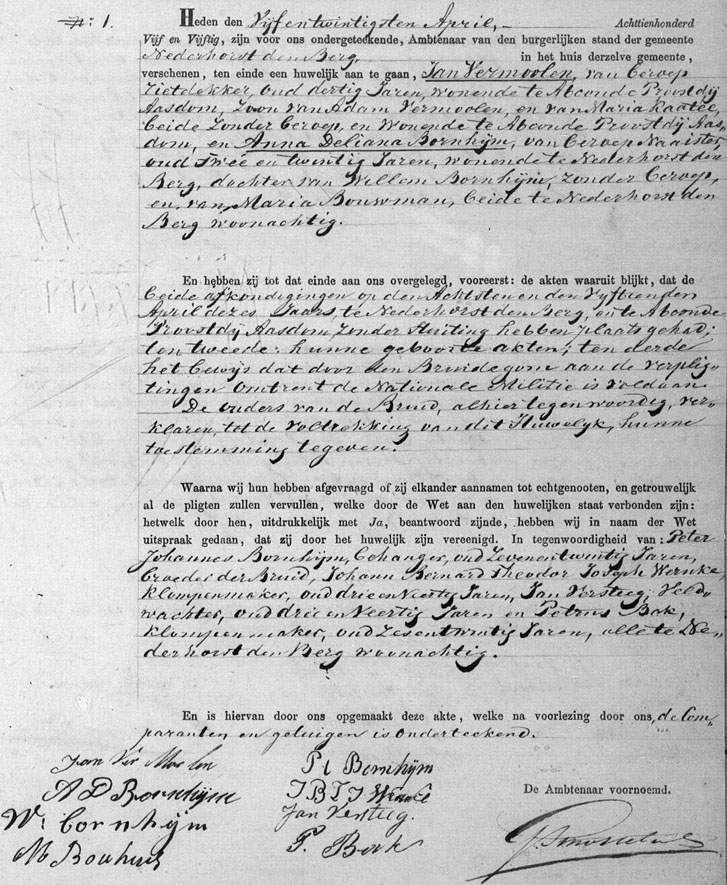 N: 1.
Heden den Vijfentwintigsten April, Achttienhonderd
Vijf en Vijftig, zijn voor ons ondergeteekende, Ambtenaar van den burgerlijken stand der gemeente
Nederhorst den Berg in het huis derzelve gemeente,
verschenen, ten einde een huwelijk aan te gaan, Jan Vermoolen, van beroep
rietdekker, oud dertig Jaren, wonende te Abcoude Proostdij
Aasdom, zoon van Adam Vermoolen, en van Maria Kastee,
beide zonder beroep, en wonende te Abcoude Proostdij Aas=
dom, en Anna Deliana Bornhijm, van beroep Naaister,
oud twee en twintig Jaren, wonende te Nederhorst den
Berg, dochter van Willem Bornhijm, zonder beroep,
en van Maria Bouwman, beide te Nederhorst den
Berg woonachtig.
En hebben zij tot dat einde aan ons overgelegd, vooreerst: de akten waaruit blijkt, dat de
beide afkondigingen op den Achtsten en den Vijftienden
April dezes Jaars, te Nederhorst den Berg, en te Abcoude
Proostdij Aasdom zonder stuiting hebben plaats gehad;
ten tweede: hunne geboorte akten; ten derde
het bewijs dat door den Bruidegom aan de verplig=
tingen omtrent de Nationale Militie is voldaan.
De ouders van de Bruid, alhier tegenwoordig, ver=
klaren, tot de voltrekking van dit Huwelijk, hunne
toestemming te geven.
Waarna wij hun hebben afgevraagd of zij elkander aannamen tot echtgenooten, en getrouwelijk
al de pligten zullen vervullen, welke door de Wet aan den huwelijken staat verbonden zijn:
hetwelk door hen, uitdrukkelijk met Ja, beantwoord zijnde, hebben wij in naam der Wet
uitspraak gedaan, dat zij door het huwelijk zijn vereenigd. In tegenwoordigheid van: Peter
Johannes Bornhijm, behanger, oud zevenentwintig Jaren,
broeder der Bruid, Johann Bernard Theodor Joseph Wernke
klompenmaker, oud drie en Veertig Jaren, Jan Versteeg, Veld=
wachter, oud drie en Veertig Jaren en Petrus Bak,
klompenmaker, oud zesentwintig Jaren, alle te Ne=
derhorst den Berg woonachtig.
En is hiervan door ons opgemaakt deze akte, welke na voorlezing door ons, de Com=
paranten en getuigen is onderteekend.
Jan Ver Moolen
P J Bornhijm
A D Bornhijm
J B T J Wernke
De Ambtenaar voornoemd.
W: Bornhijm
Jan Versteeg.
P. Bak
M